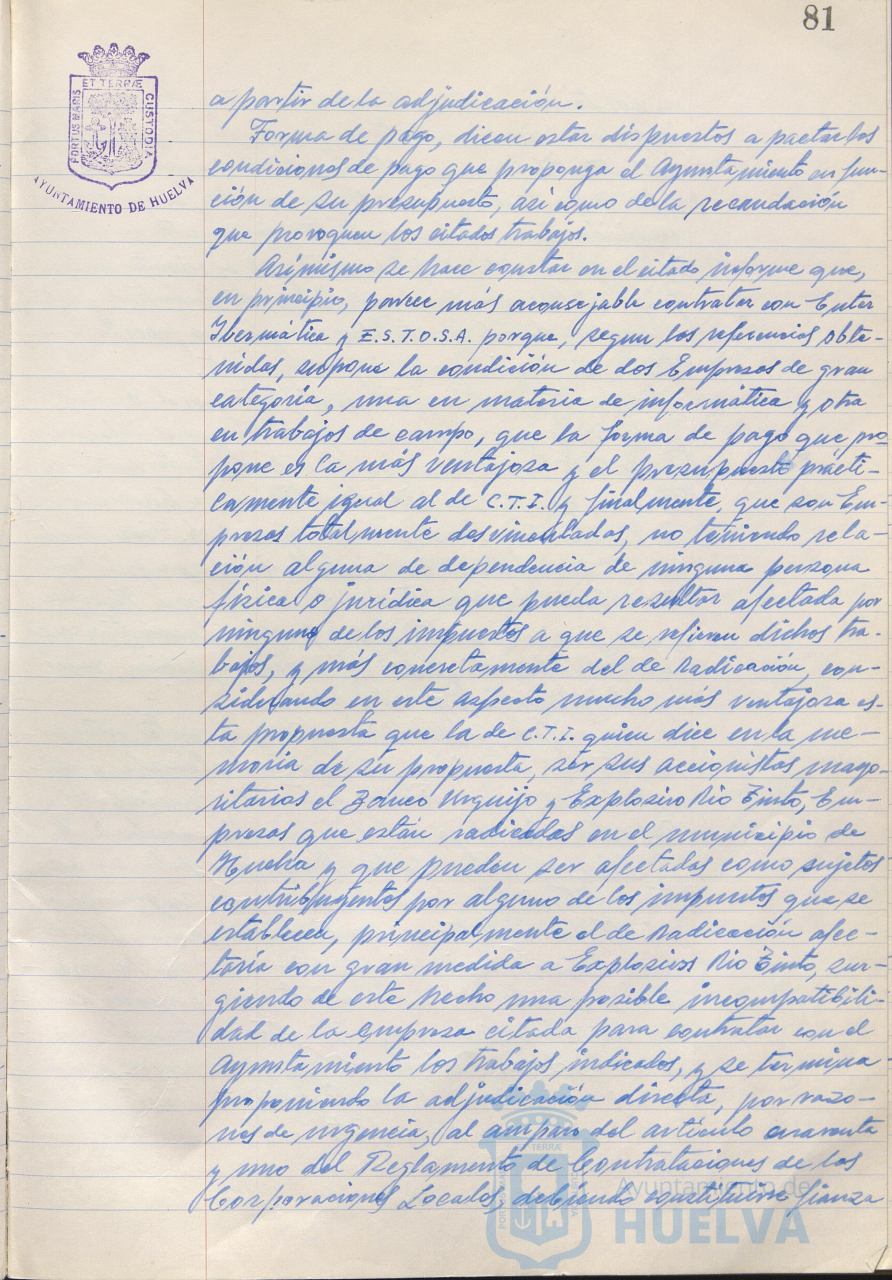 81
ET TERRÆ
PORTUS MARIS
CUSTODIA
AYUNTAMIENTO DE HUELVA
a partir de la adjudicación.
Forma de pago, dicen estar dispuestos a pactar las
condiciones de pago que proponga el Ayuntamiento en fun-
ción de su presupuesto, así como de la recaudación
que provoquen los citados trabajos.
Asimismo se hace constar en el citado informe que,
en principio, parece más aconsejable contratar con Enter
Ibermática y E.S.T.O.S.A. porque, segun las referencias obte-
nidas, supone la condición de dos Empresas de gran
categoría, una en materia de informática y otra
en trabajos de campo, que la forma de pago que pro-
pone es la más ventajosa y el presupuesto prácti-
camente igual al de C.T.I. y finalmente, que son Em-
presas totalmente desvinculadas, no teniendo rela-
ción alguna de dependencia de ninguna persona
física o jurídica que pueda resultar afectada por
ninguno de los impuestos a que se refieren dichos tra-
bajos, y más concretamente del de Radicación, con-
siderando en este aspecto mucho más ventajosa es-
ta propuesta que la de C.T.I. quien dice en la me-
moria de su propuesta, ser sus accionistas mayo-
ritarios el Banco Urquijo y Explosivo Rio Tinto, Em-
presas que están radicadas en el municipio de
Huelva y que pueden ser afectadas como sujetos
contribuyentes por alguno de los impuestos que se
establecen, principalmente el de Radicación afec-
taría con gran medida a Explosivos Rio Tinto, sur-
giendo de este hecho una posible incompatibili-
dad de la Empresa citada para contratar con el
Ayuntamiento los trabajos indicados, y se termina
proponiendo la adjudicación directa, por razo-
nes de urgencia, al amparo del artículo cuarenta
y uno del Reglamento de Contrataciones de las
Corporaciones Locales, debiendo constituirse fianza
Ayuntamiento de
HUELVA